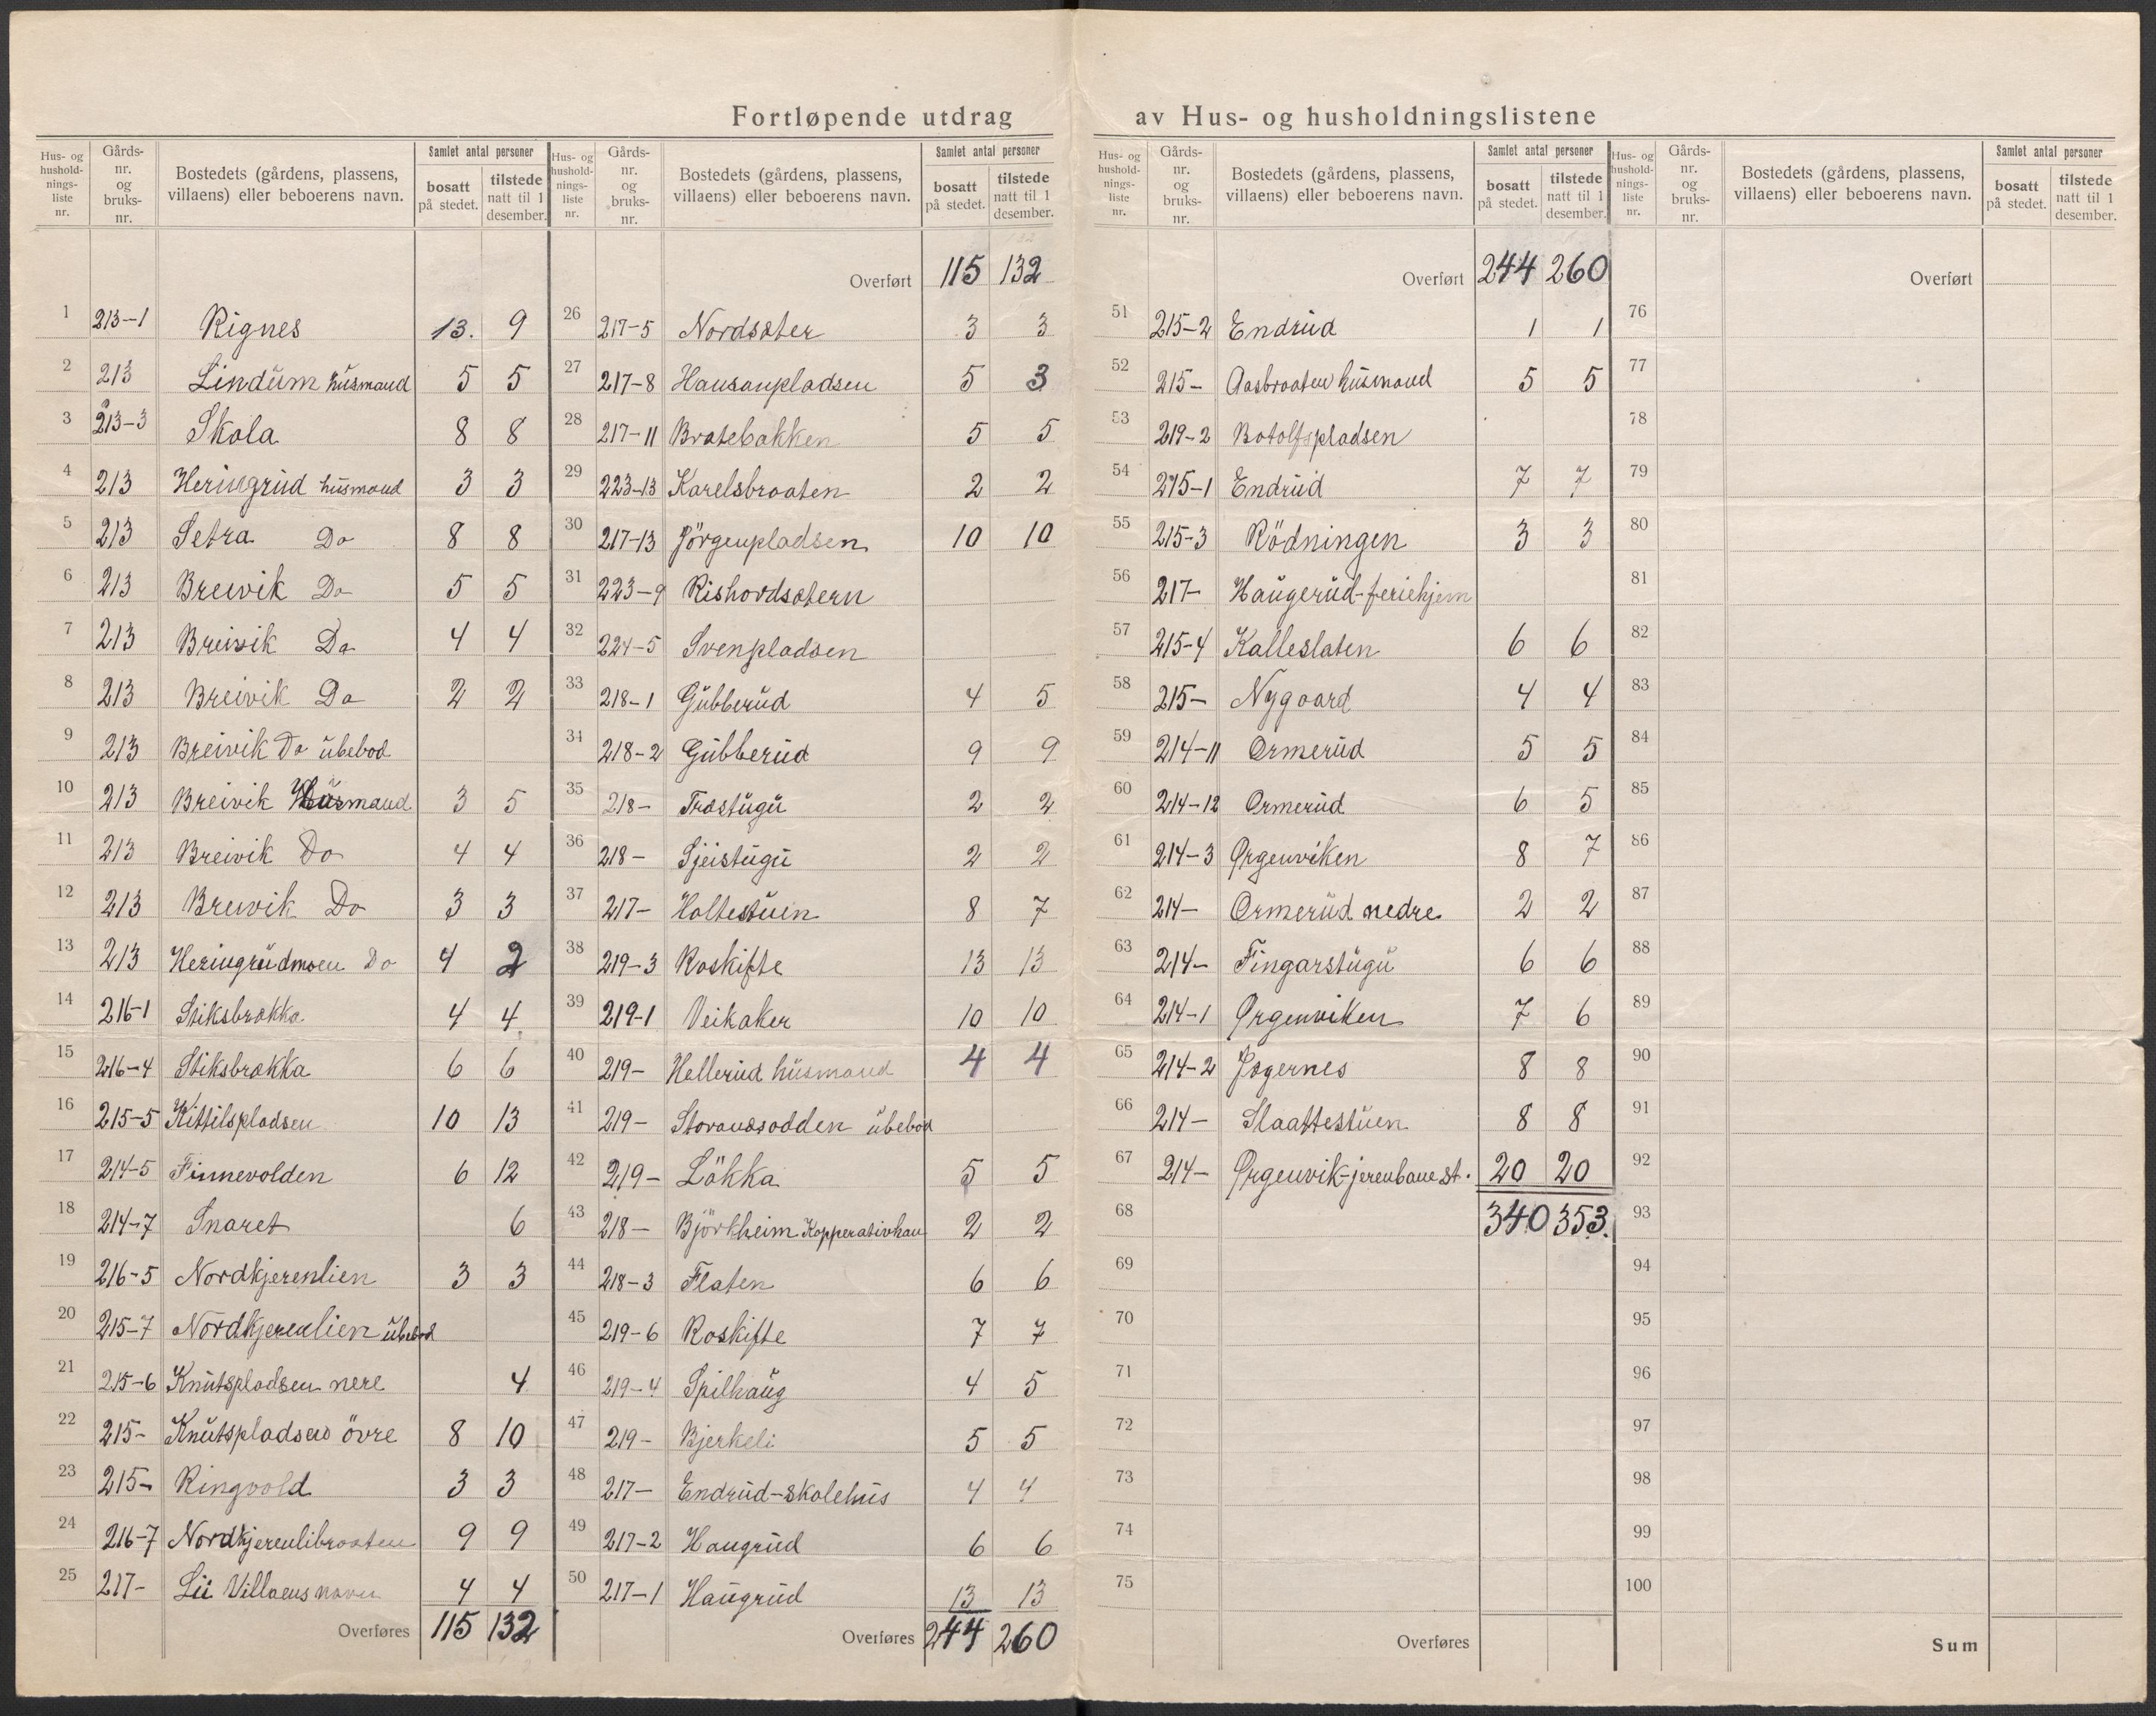 Fortløpende utdrag av Hus- og husholdningslistene
Hus- og husholdnings-liste nr. | Gårds-nr. og bruks-nr. | Bostedets (gårdens, plassens, villaens) eller beboerens navn. | Samlet antal personer | bosatt på stedet. | tilstede natt til 1 desember.
1 213-1 Rignes 13. 9
2 213 Lindum husmand 5 5
3 213-3 Skola 8 8
4 213 Heringrud husmand 3 3
5 213 Setra Do 8 8
6 213 Breivik Do 5 5
7 213 Breivik Do 4 4
8 213 Breivik Do 2 2
9 213 Breivik Do übebod
10 213 Breivik Husmand 3 5
11 213 Breivik Do 4 4
12 213 Breivik Do 3 3
13 213 Heringrudmoen Do 4 2
14 216-1 Stiksbrakka 4 4
15 216-4 Stiksbrakka 6 6
16 215-5 Kittilspladsen 10 13
17 214-5 Finnevolden 6 12
18 214-7 Snaret 6
19 216-5 Nordkjerenlien 3 3
20 215-7 Nordkjerenlien übebod
21 215-6 Knutspladsen nere 4
22 215- Knutspladsen övre 8 10
23 215- Ringvold 3 3
24 216-7 Nordkjerenlibraaten 9 9
25 217- Lii Villaens navn 4 4
Overføres 115 132
Hus- og husholdnings-liste nr. | Gårds-nr. og bruks-nr. | Bostedets (gårdens, plassens, villaens) eller beboerens navn. | Samlet antal personer | bosatt på stedet. | tilstede natt til 1 desember.
Overført 115 132
26 217-5 Nordsæter 3 3
27 217-8 Hansanpladsen 5 3
28 217-11 Bratebakken 5 5
29 223-13 Karelsbraaten 2 2
30 217-13 Jörgenpladsen 10 10
31 223-9 Rishovdsætern
32 224-5 Svenpladsen
33 218-1 Gubberud 4 5
34 218-2 Gubberud 9 9
35 218- Træstugu 2 2
36 218- Sjeistugu 2 2
37 217- Holtestuen 8 7
38 219-3 Roskifte 13 13
39 219-1 Veikaker 10 10
40 219- Hellerud husmand 4 4
41 219- Storanesodden übebod
42 219- Lökka 5 5
43 218- Björkheim Kopperativhan 2 2
44 218-3 Flaten 6 6
45 219-6 Roskifte 7 7
46 219-4 Spilhaug 4 5
47 219- Bjerkeli 5 5
48 217- Endrud-skolehus 4 4
49 217-2 Haugrud 6 6
50 217-1 Haugrud 13 13
Overføres 244 260
Hus- og husholdnings-liste nr. | Gårds-nr. og bruks-nr. | Bostedets (gårdens, plassens, villaens) eller beboerens navn. | Samlet antal personer | bosatt på stedet. | tilstede natt til 1 desember.
Overført 244 260
51 215-2 Endrud 1 1
52 215- Aasbraaten husmand 5 5
53 219-2 Botolfspladsen
54 215-1 Endrud 7 7
55 215-3 Rödningen 3 3
56 217- Haugerud-feriehjem
57 215-4 Kalleslaten 6 6
58 215- Nygaard 4 4
59 214-11 Ormerud 5 5
60 214-12 Ormerud 6 5
61 214-3 Ørgenviken 8 7
62 214- Ormerud nedre 2 2
63 214- Fingarstugu 6 6
64 214-1 Ørgenviken 7 6
65 214-2 Jægernes 8 8
66 214- Slaattestuen 8 8
67 214- Ørgenvik-jerenbanest. 20 20
68 340 353.
69
70
71
72
73
74
75
Overføres
Hus- og husholdnings-liste nr. | Gårds-nr. og bruks-nr. | Bostedets (gårdens, plassens, villaens) eller beboerens navn. | Samlet antal personer | bosatt på stedet. | tilstede natt til 1 desember.
Overført
76
77
78
79
80
81
82
83
84
85
86
87
88
89
90
91
92
93
94
95
96
97
98
99
100
Sum